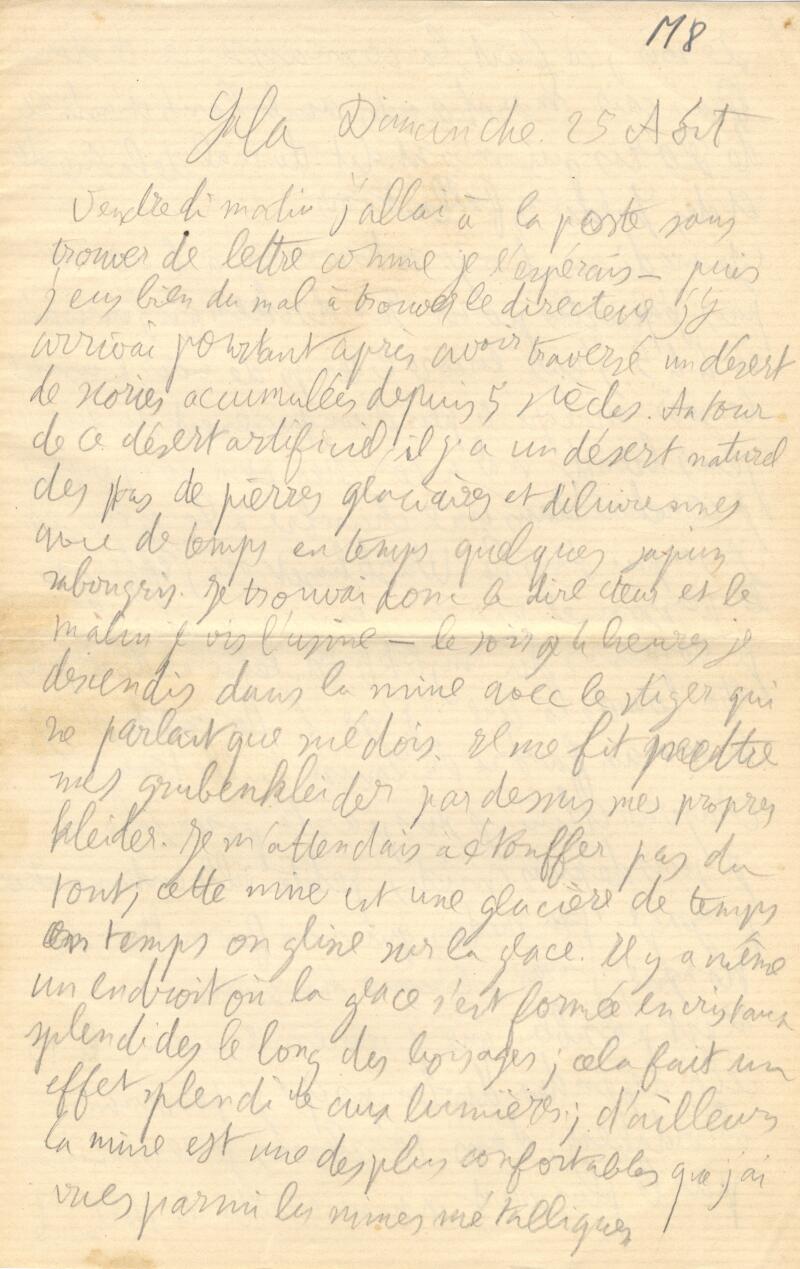 M8
Sala Dimanche. 25 Août
Vendredi matin j'allai à la poste sans
trouver de lettre comme je l'espérais — puis
j'eus bien du mal à trouver le directeur j'y
arrivai pourtant après avoir traversé un désert
de scories accumulées depuis 5 siècles. Autour
de ce désert artificiel il y a un désert naturel
des tas de pierres glaciaires et diluviennes
avec de temps en temps quelques sapins
rabougris. Je trouvai donc le directeur et le
matin je vis l'usine — le soir à 4 heures je
descendis dans la mine avec le stiger qui
ne parlait que suédois. Il me fit mettre
mes grubenkleider par dessus mes propres
kleider. Je m'attendais à étouffer pas du
tout, cette mine est une glacière de temps
en temps on glisse sur la glace. Il y a même
un endroit où la glace s'est formée en cristaux
splendides le long des boisages ; cela fait un
effet splendide aux lumières ; d'ailleurs
la mine est une des plus confortables que j'ai
vues parmi les mines métalliques